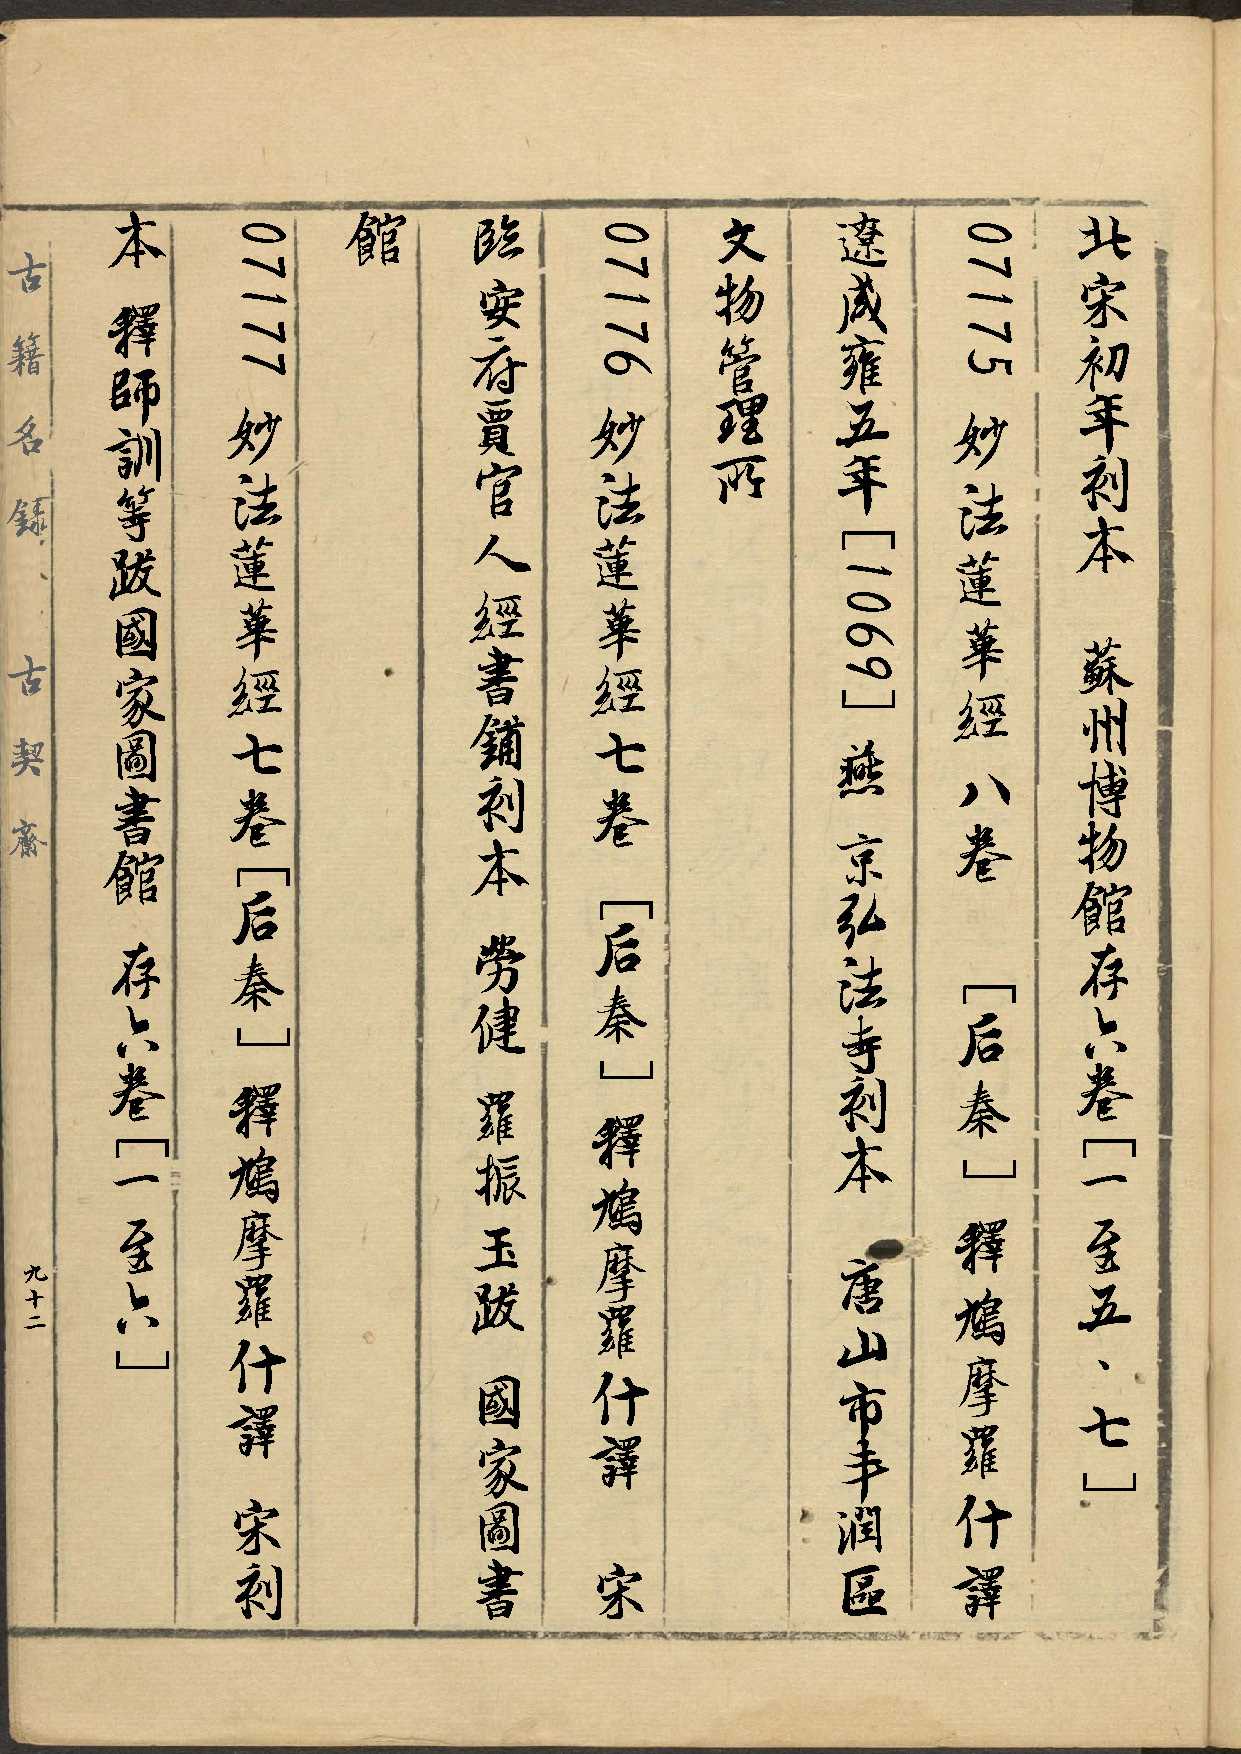 北宋初年刻本 蘇州博物館存六卷[一至五、七]
07175 妙法蓮華經 八卷 [后秦] 釋鳩摩羅什譯
遼咸雍五年[1069] 燕京弘法寺刻本 唐山市丰潤區
文物管理所
07176 妙法蓮華經七卷 [后秦] 釋鳩摩羅什譯 宋
臨安府賈官人經書鋪刻本 勞健 羅振玉跋 國家圖書
館
07177 妙法蓮華經七卷[后秦] 釋鳩摩羅什譯 宋刻
本 釋師訓等跋國家圖書館 存六卷[一至六]
古籍名錄、、古契齋
九十二